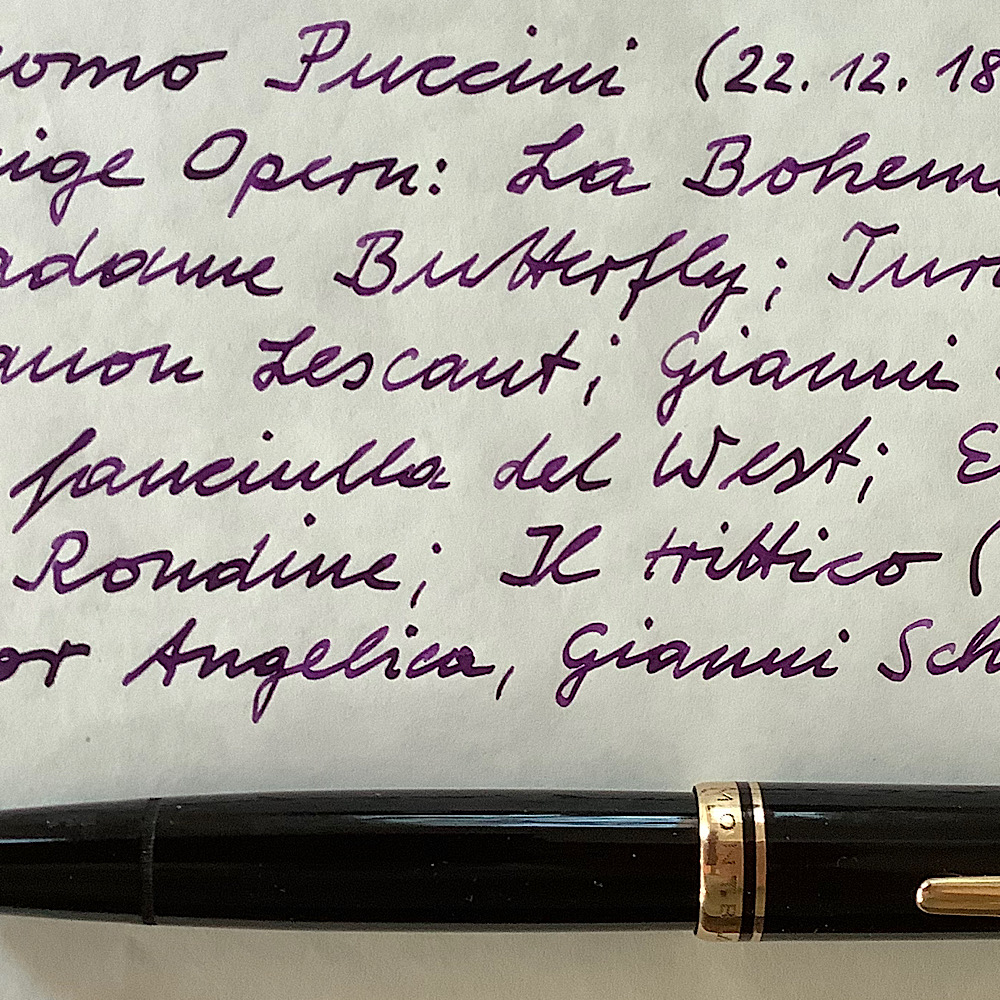 omo Puccini (22. 12. 18
ige Opern: La Bohem
adame Butterfly; Tura
anon Lescaut; Gianni
fanciulla del West; E
Rondine; Il trittico (
or Angelica, Gianni Sch
MONTBL